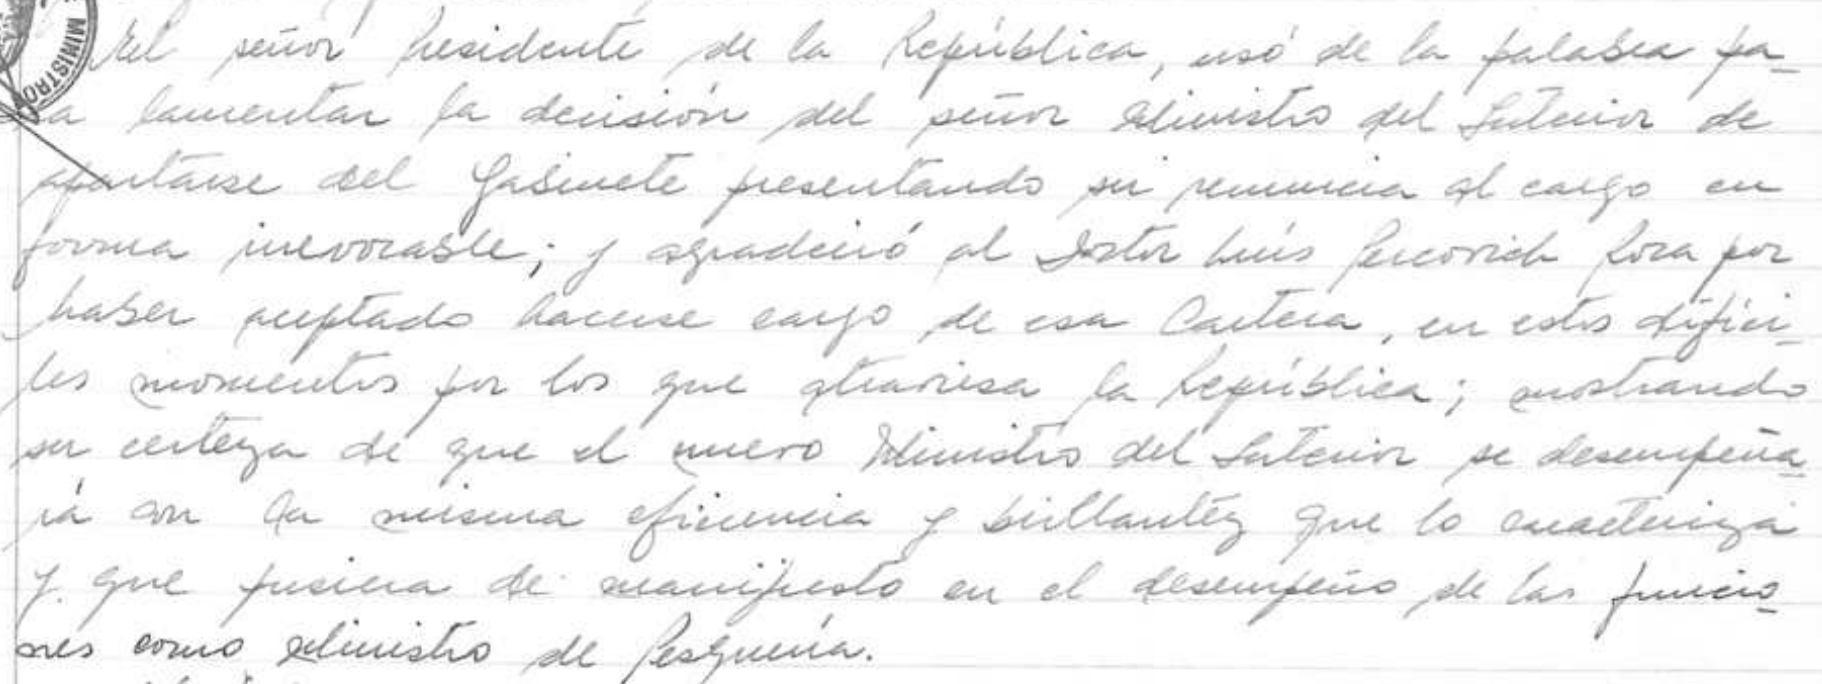 MINISTRO
El señor Presidente de la República, usó de la palabra pa-
ra lamentar la decisión del señor Ministro del Interior de
apartarse del Gabinete presentando su renuncia al cargo en
forma irrevocable; y agradeció al Doctor Luis Percovich Roca por
haber aceptado hacerse cargo de esa Cartera, en estos difíci-
les momentos por los que atraviesa la República; mostrando
su certeza de que el nuevo Ministro del Interior se desempeña-
rá con la misma eficiencia y brillantéz que lo caracteriza
y que pusiera de manifiesto en el desempeño de las funcio-
nes como Ministro de Pesquería.